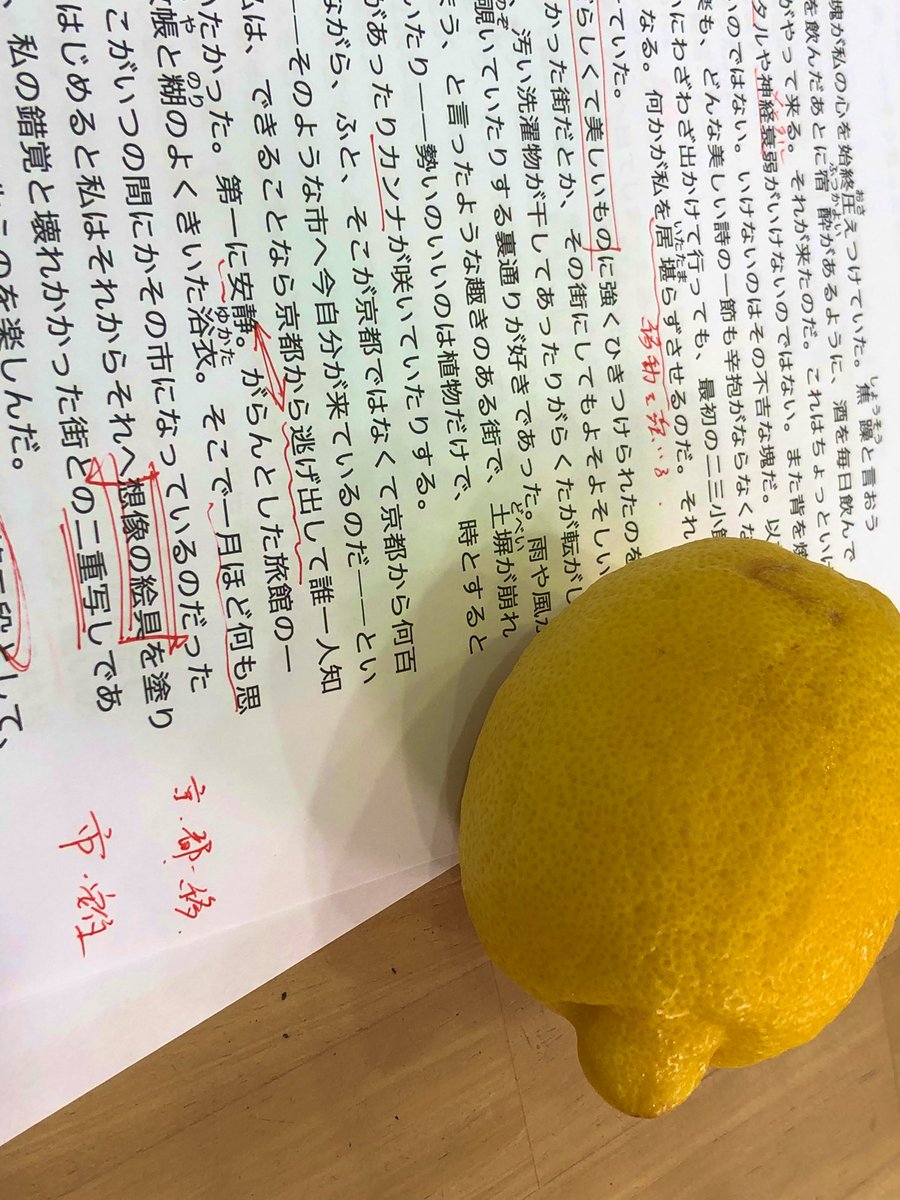 塊が私の心を始終圧えつけていた。焦躁と言おう
を飲んだあとに宿酔があるように、酒を毎日飲んで
がやって来る。それが来たのだ。これはちょっとい
タルや神経衰弱がいけないのではない。また背を
いのではない。いけないのはその不吉な塊だ。以
楽も、どんな美しい詩の一節も辛抱がならなくな
いにわざわざ出かけて行っても、最初の二三小節
なる。何かが私を居堪らずさせるのだ。それ
ていた。
らしくて美しいものに強くひきつけられたのを
かった街だとか、その街にしてもよそよそしい
汚い洗濯物が干してあったりがらくたが転がし
覗いていたりする裏通りが好きであった。雨や風
よう、と言ったような趣きのある街で、土塀が崩れ
いたり――勢いのいいのは植物だけで、時とすると
があったりカンナが咲いていたりする。
ながら、ふと、そこが京都ではなくて京都から何百
――そのような市へ今自分が来ているのだ――とい
私は、できることなら京都から逃げ出して誰一人知
いたかった。第一に安静。がらんとした旅館の一
帳と糊のよくきいた浴衣。そこで一月ほど何も思
こがいつの間にかその市になっているのだった
はじめると私はそれからそれへ想像の絵具を塗り
私の錯覚と壊れかかった街との二重写しであ
のを楽しんだ。
京都